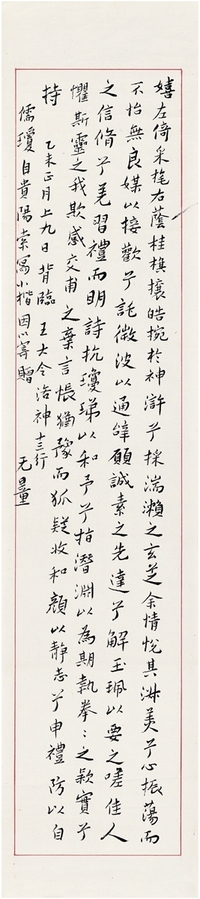 嬉左倚采旄右蔭桂旗攘皓捥於神滸兮採湍瀨之玄芝余情悅其淑美兮心振蕩而
不怡無良媒以接歡兮託微波以通辭願誠素之先達兮解玉珮以要之嗟佳人
之信脩兮羌習禮而明詩抗瓊珶以和予兮指潛淵以為期執拳:之款實兮
懼斯靈之我欺感交甫之棄言悵猶豫而狐疑收和顏以靜志兮申禮防以自
持
乙未正月上九日背臨王大令洛神十三行
儒瓊自貴陽索寫小楷因以寄贈
无量